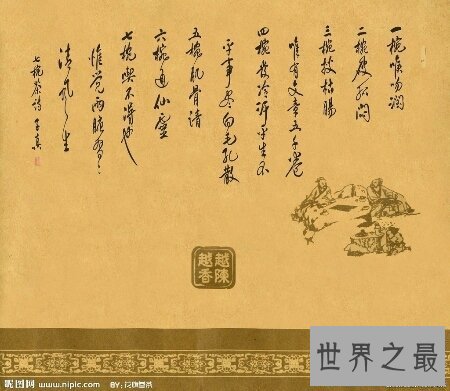 一椀喉吻润
二椀破孤闷
三椀搜枯肠
唯有文章五千卷
四椀发汗平生不
平事尽向毛孔散
五椀肌骨清
六椀通仙灵
七椀喫不得也
惟觉两腋习习
清风生
七椀茶诗
越陳
越香
昵图网 www.nipic.com BY:
世界之最